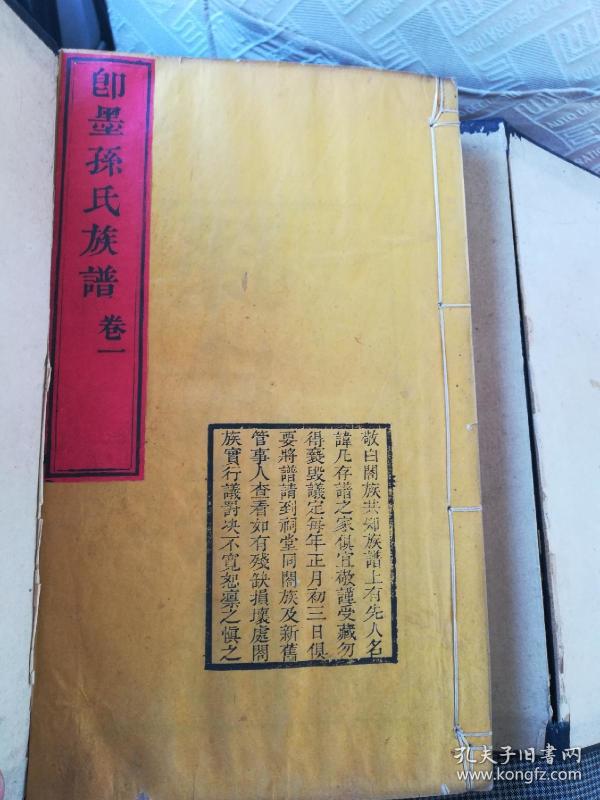 即墨孫氏族譜 卷一
敬白閤族共知族譜上有先人名
諱凡存譜之家俱宜敬謹受藏勿
得褻毀議定每年正月初三日俱
要將譜請到祠堂同閤族及新舊
管事人查看如有殘缺損壞處閤
族實行議罰决不寬恕稟之慎之
孔夫子旧书网
www.kongfz.com